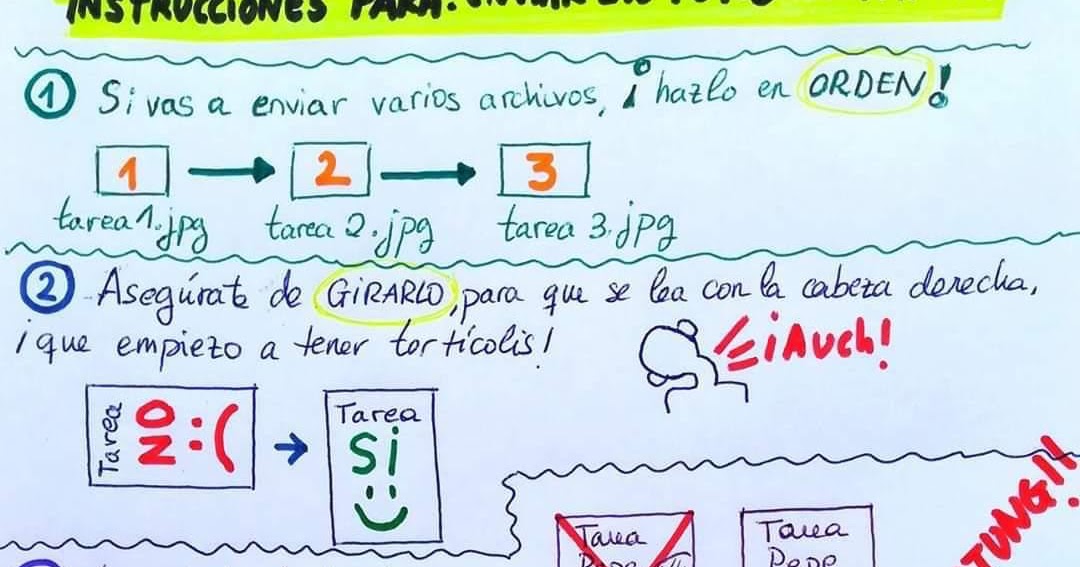 INSTRUCCIONES PARA:
① Si vas a enviar varios archivos, ¡hazlo en ORDEN!
1 2 3
tarea1.jpg tarea 2.jpg tarea 3.jpg
② Asegúrate de GIRARLO, para que se lea con la cabeza derecha,
¡que empiezo a tener tortícolis!
¡AUCH!
Tarea NO :(
Tarea
SÍ
Tarea
Tarea
Pepe
TUNG!!